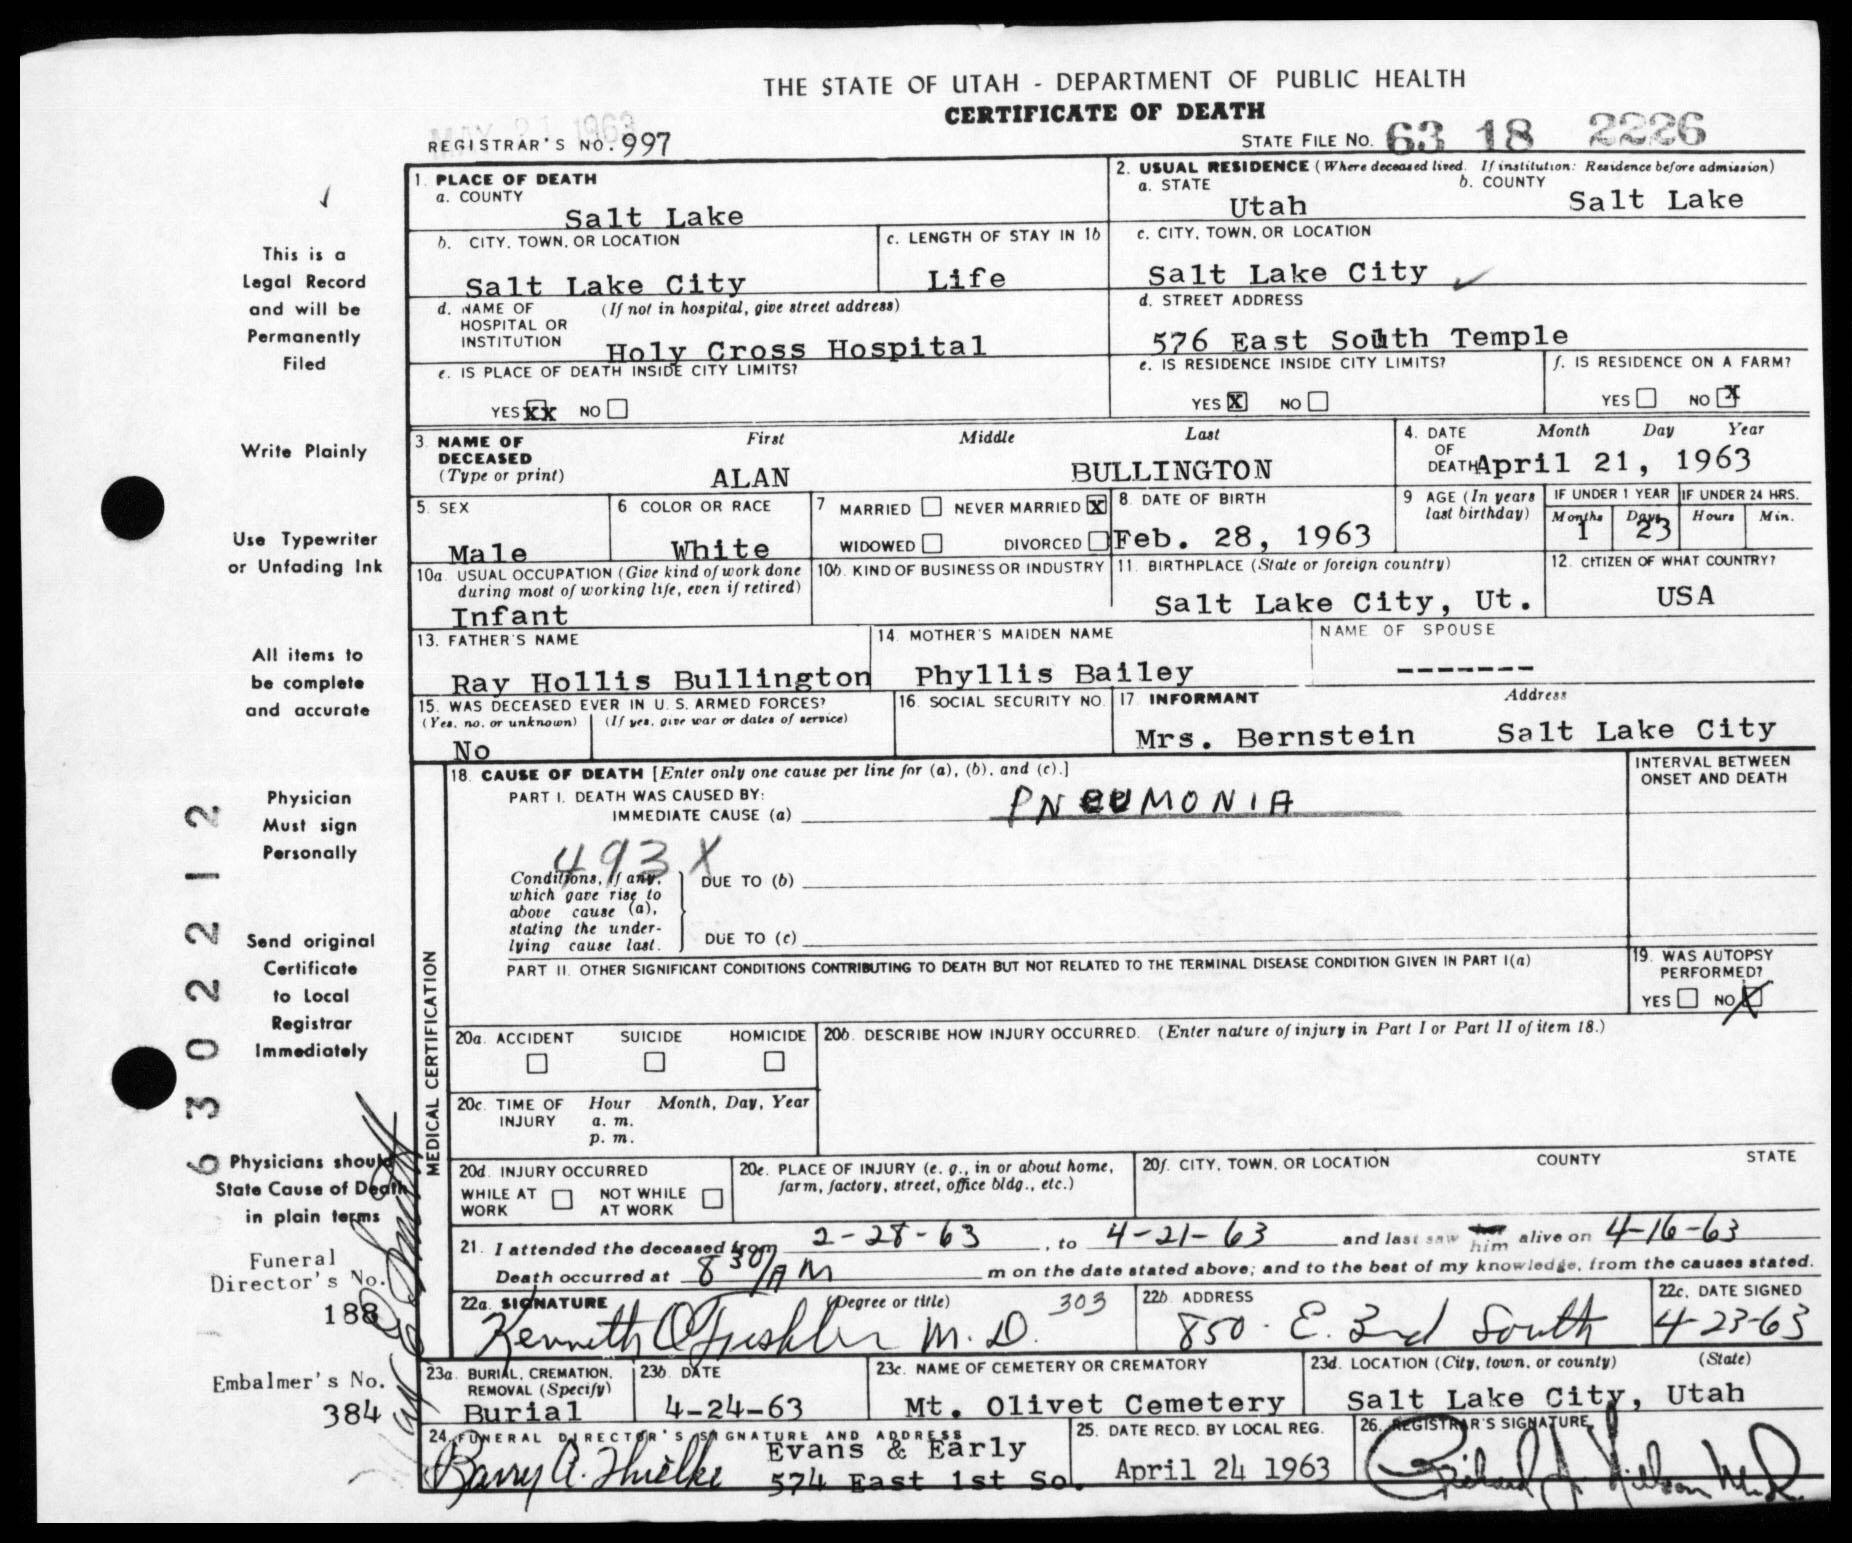 THE STATE OF UTAH - DEPARTMENT OF PUBLIC HEALTH
CERTIFICATE OF DEATH
MAY 21 1963
REGISTRAR'S NO. 997
STATE FILE NO. 63 18 2226
1. PLACE OF DEATH
a. COUNTY
Salt Lake
2. USUAL RESIDENCE (Where deceased lived. If institution: Residence before admission)
a. STATE b. COUNTY
Utah Salt Lake
b. CITY, TOWN, OR LOCATION
Salt Lake City
c. LENGTH OF STAY IN 1b
Life
c. CITY, TOWN, OR LOCATION
Salt Lake City
d. NAME OF HOSPITAL OR INSTITUTION (If not in hospital, give street address)
Holy Cross Hospital
d. STREET ADDRESS
576 East South Temple
e. IS PLACE OF DEATH INSIDE CITY LIMITS?
YES XX NO
e. IS RESIDENCE INSIDE CITY LIMITS?
YES X NO
f. IS RESIDENCE ON A FARM?
YES NO X
3. NAME OF DECEASED (Type or print)
First Middle Last
ALAN BULLINGTON
4. DATE OF DEATH Month Day Year
April 21, 1963
5. SEX
Male
6 COLOR OR RACE
White
7 MARRIED NEVER MARRIED X
WIDOWED DIVORCED
8. DATE OF BIRTH
Feb. 28, 1963
9 AGE (In years last birthday)
IF UNDER 1 YEAR IF UNDER 24 HRS.
Months Days Hours Min.
1 23
10a. USUAL OCCUPATION (Give kind of work done during most of working life, even if retired)
Infant
10b. KIND OF BUSINESS OR INDUSTRY
11. BIRTHPLACE (State or foreign country)
Salt Lake City, Ut.
12. CITIZEN OF WHAT COUNTRY?
USA
13. FATHER'S NAME
Ray Hollis Bullington
14. MOTHER'S MAIDEN NAME
Phyllis Bailey
NAME OF SPOUSE
-------
15. WAS DECEASED EVER IN U.S. ARMED FORCES?
(Yes, no, or unknown) (If yes, give war or dates of service)
No
16. SOCIAL SECURITY NO.
17 INFORMANT Address
Mrs. Bernstein Salt Lake City
MEDICAL CERTIFICATION
18. CAUSE OF DEATH [Enter only one cause per line for (a), (b), and (c).]
INTERVAL BETWEEN ONSET AND DEATH
PART I. DEATH WAS CAUSED BY:
IMMEDIATE CAUSE (a) PNEUMONIA
493 X
Conditions, if any, which gave rise to above cause (a), stating the underlying cause last.
DUE TO (b)
DUE TO (c)
PART II. OTHER SIGNIFICANT CONDITIONS CONTRIBUTING TO DEATH BUT NOT RELATED TO THE TERMINAL DISEASE CONDITION GIVEN IN PART I(a)
19. WAS AUTOPSY PERFORMED?
YES NO X
20a. ACCIDENT SUICIDE HOMICIDE
20b. DESCRIBE HOW INJURY OCCURRED. (Enter nature of injury in Part I or Part II of item 18.)
20c. TIME OF INJURY Hour Month, Day, Year
a. m.
p. m.
20d. INJURY OCCURRED
WHILE AT WORK NOT WHILE AT WORK
20e. PLACE OF INJURY (e. g., in or about home, farm, factory, street, office bldg., etc.)
20f. CITY, TOWN, OR LOCATION COUNTY STATE
21. I attended the deceased from 2-28-63, to 4-21-63 and last saw her him alive on 4-16-63
Death occurred at 8 30/AM m on the date stated above; and to the best of my knowledge, from the causes stated.
22a. SIGNATURE (Degree or title) 303
Kenneth M. D.
22b. ADDRESS
850 - E. 3rd South
22c. DATE SIGNED
4-23-63
23a. BURIAL, CREMATION, REMOVAL (Specify)
Burial
23b. DATE
4-24-63
23c. NAME OF CEMETERY OR CREMATORY
Mt. Olivet Cemetery
23d. LOCATION (City, town, or county) (State)
Salt Lake City, Utah
24. FUNERAL DIRECTOR'S SIGNATURE AND ADDRESS
Barry A. Thielke
Evans & Early
574 East 1st So.
25. DATE RECD. BY LOCAL REG.
April 24 1963
26. REGISTRAR'S SIGNATURE
This is a
Legal Record
and will be
Permanently
Filed
Write Plainly
Use Typewriter
or Unfading Ink
All items to
be complete
and accurate
Physician
Must sign
Personally
Send original
Certificate
to Local
Registrar
Immediately
Physicians should
State Cause of Death
in plain terms
Funeral
Director's No.
188
Embalmer's No.
384
63022212